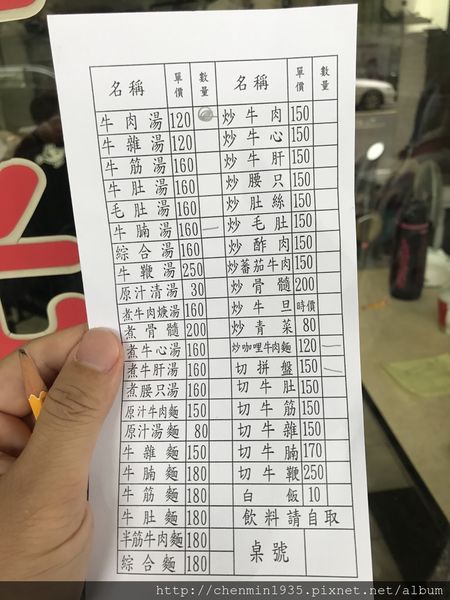 名稱 單價 數量 名稱 單價 數量
牛肉湯 120 炒牛肉 150
牛雜湯 120 炒牛心 150
牛筋湯 160 炒牛肝 150
牛肚湯 160 炒腰只 150
毛肚湯 160 炒肚絲 150
牛腩湯 160 炒毛肚 150
綜合湯 160 炒酢肉 150
牛鞭湯 250 炒蕃茄牛肉 150
原汁清湯 30 炒骨髓 200
煮牛肉焿湯 160 炒牛旦 時價
煮骨髓 200 炒青菜 80
煮牛心湯 160 炒咖哩牛肉麵 120
煮牛肝湯 160 切拼盤 150
煮腰只湯 160 切牛肚 150
原汁牛肉麵 150 切牛筋 150
原汁湯麵 80 切牛雜 150
牛雜麵 150 切牛腩 170
牛腩麵 180 切牛鞭 250
牛筋麵 180 白飯 10
牛肚麵 180 飲料請自取
半筋牛肉麵 180 桌號
綜合麵 180
http://chenmin1935.pixnet.net/album